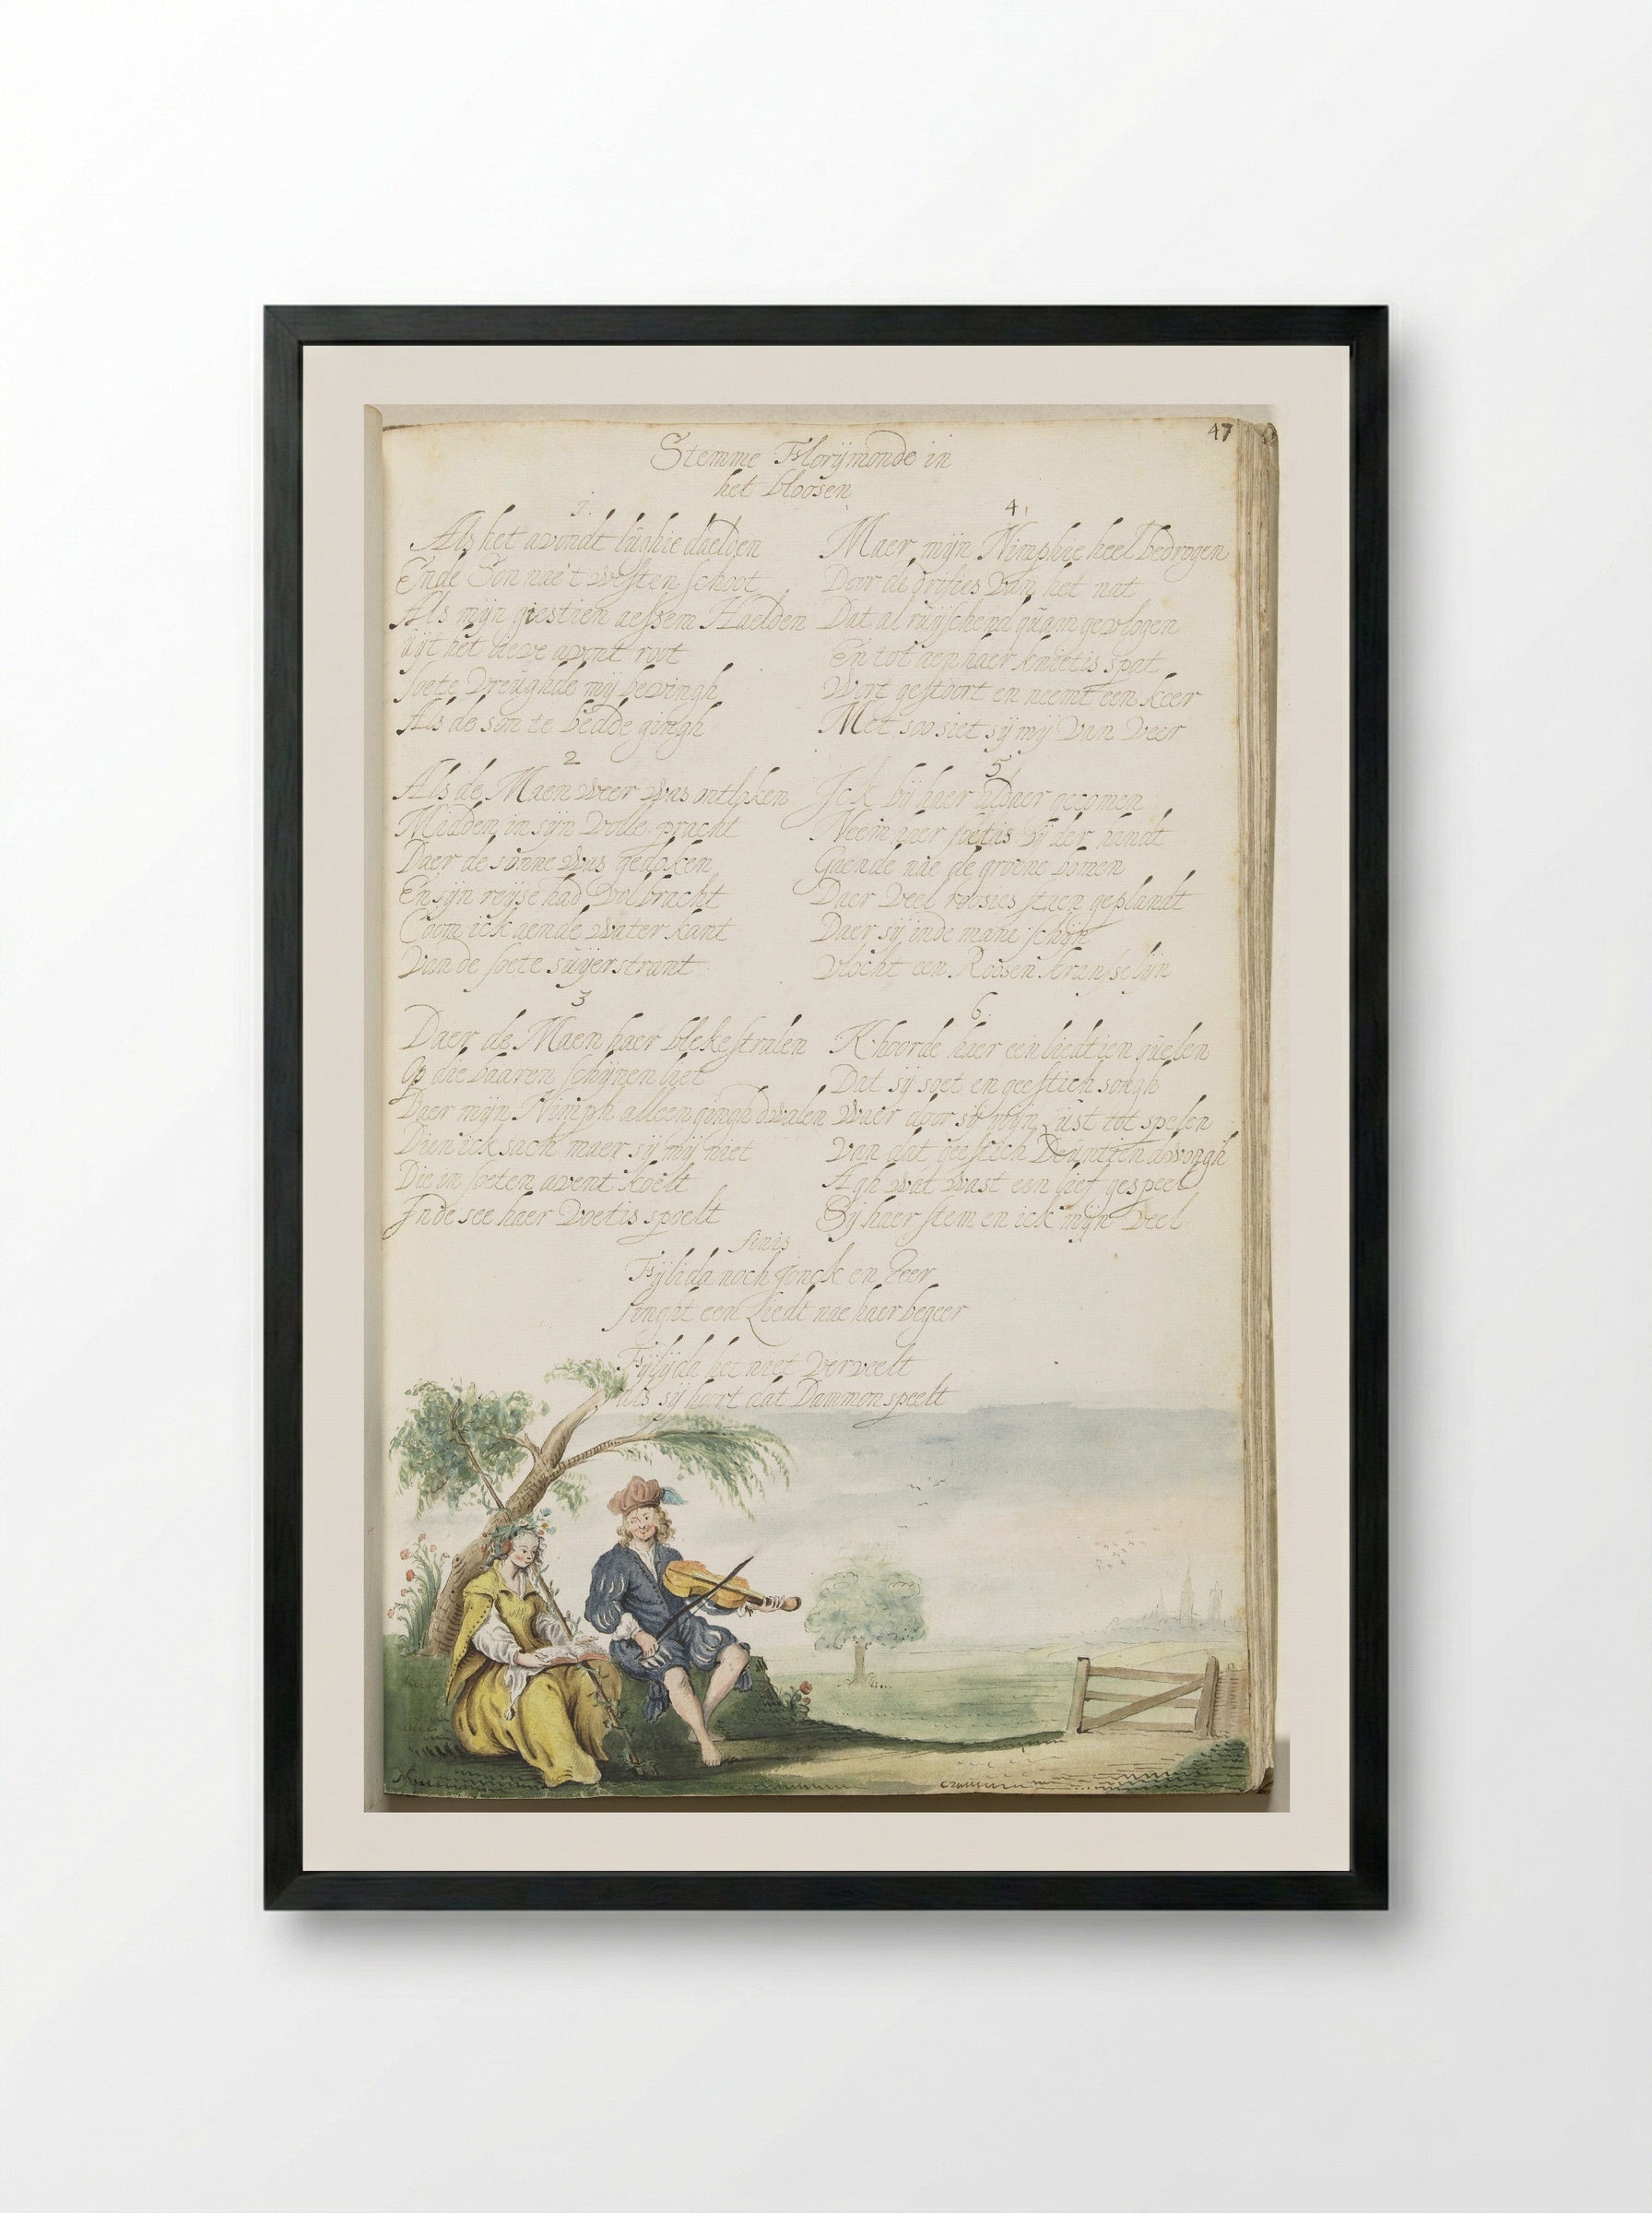 47
Stemme Florijmonde in
het bloosen
1.
Als het avondt lughie daelden
Ende Son nae't westen schoot
Als mijn giestien aessem Haelden
uijt het lieve avont root
soete vreughde mij bevingh
Als de son te bedde gingh
2
Als de Maen weer was ontloken
Midden in sijn volle pracht
Daer de sonne was gedoken
En sijn reijse had volbracht
Coom ick aende water kant
Van de soete suijerstrant
3
Daer de Maen haer bleke stralen
Op die baaren schijnen liet
Daer mijn Nimph alleen gingh dwalen
Dien ick sach maer sij mij niet
Die in soeten avent koelt
Inde see haer voetis spoelt
4.
Maer mijn Nimphie heel bedrogen
Door de golfies van het nat
Dat al ruijschend quam gevlogen
En tot aen haer knietis spat
Wort gestoort en neemt een keer
Met soo siet sij mij van veer
5
Ick bij haer aldaer gecomen
Neem haer soetis bij der handt
Gaende nae de groene bomen
Daer veel roosies staen geplandt
Daer sij inde mane schijn
vlocht een Roosen kranselijn
6.
K hoorde haer een liedtien quelen
Dat sij soet en geestich songh
waer door sij mijn Lust tot spelen
van dat geestich Deuntien dwongh
Agh wat wast een lief gespeel
Sij haer stem en ick mijn veel
finis
Fijlida noch jonck en teer
singht een Liedt nae haer begeer
Fijlijda het niet verveelt
als sij hoort dat Dammon speelt